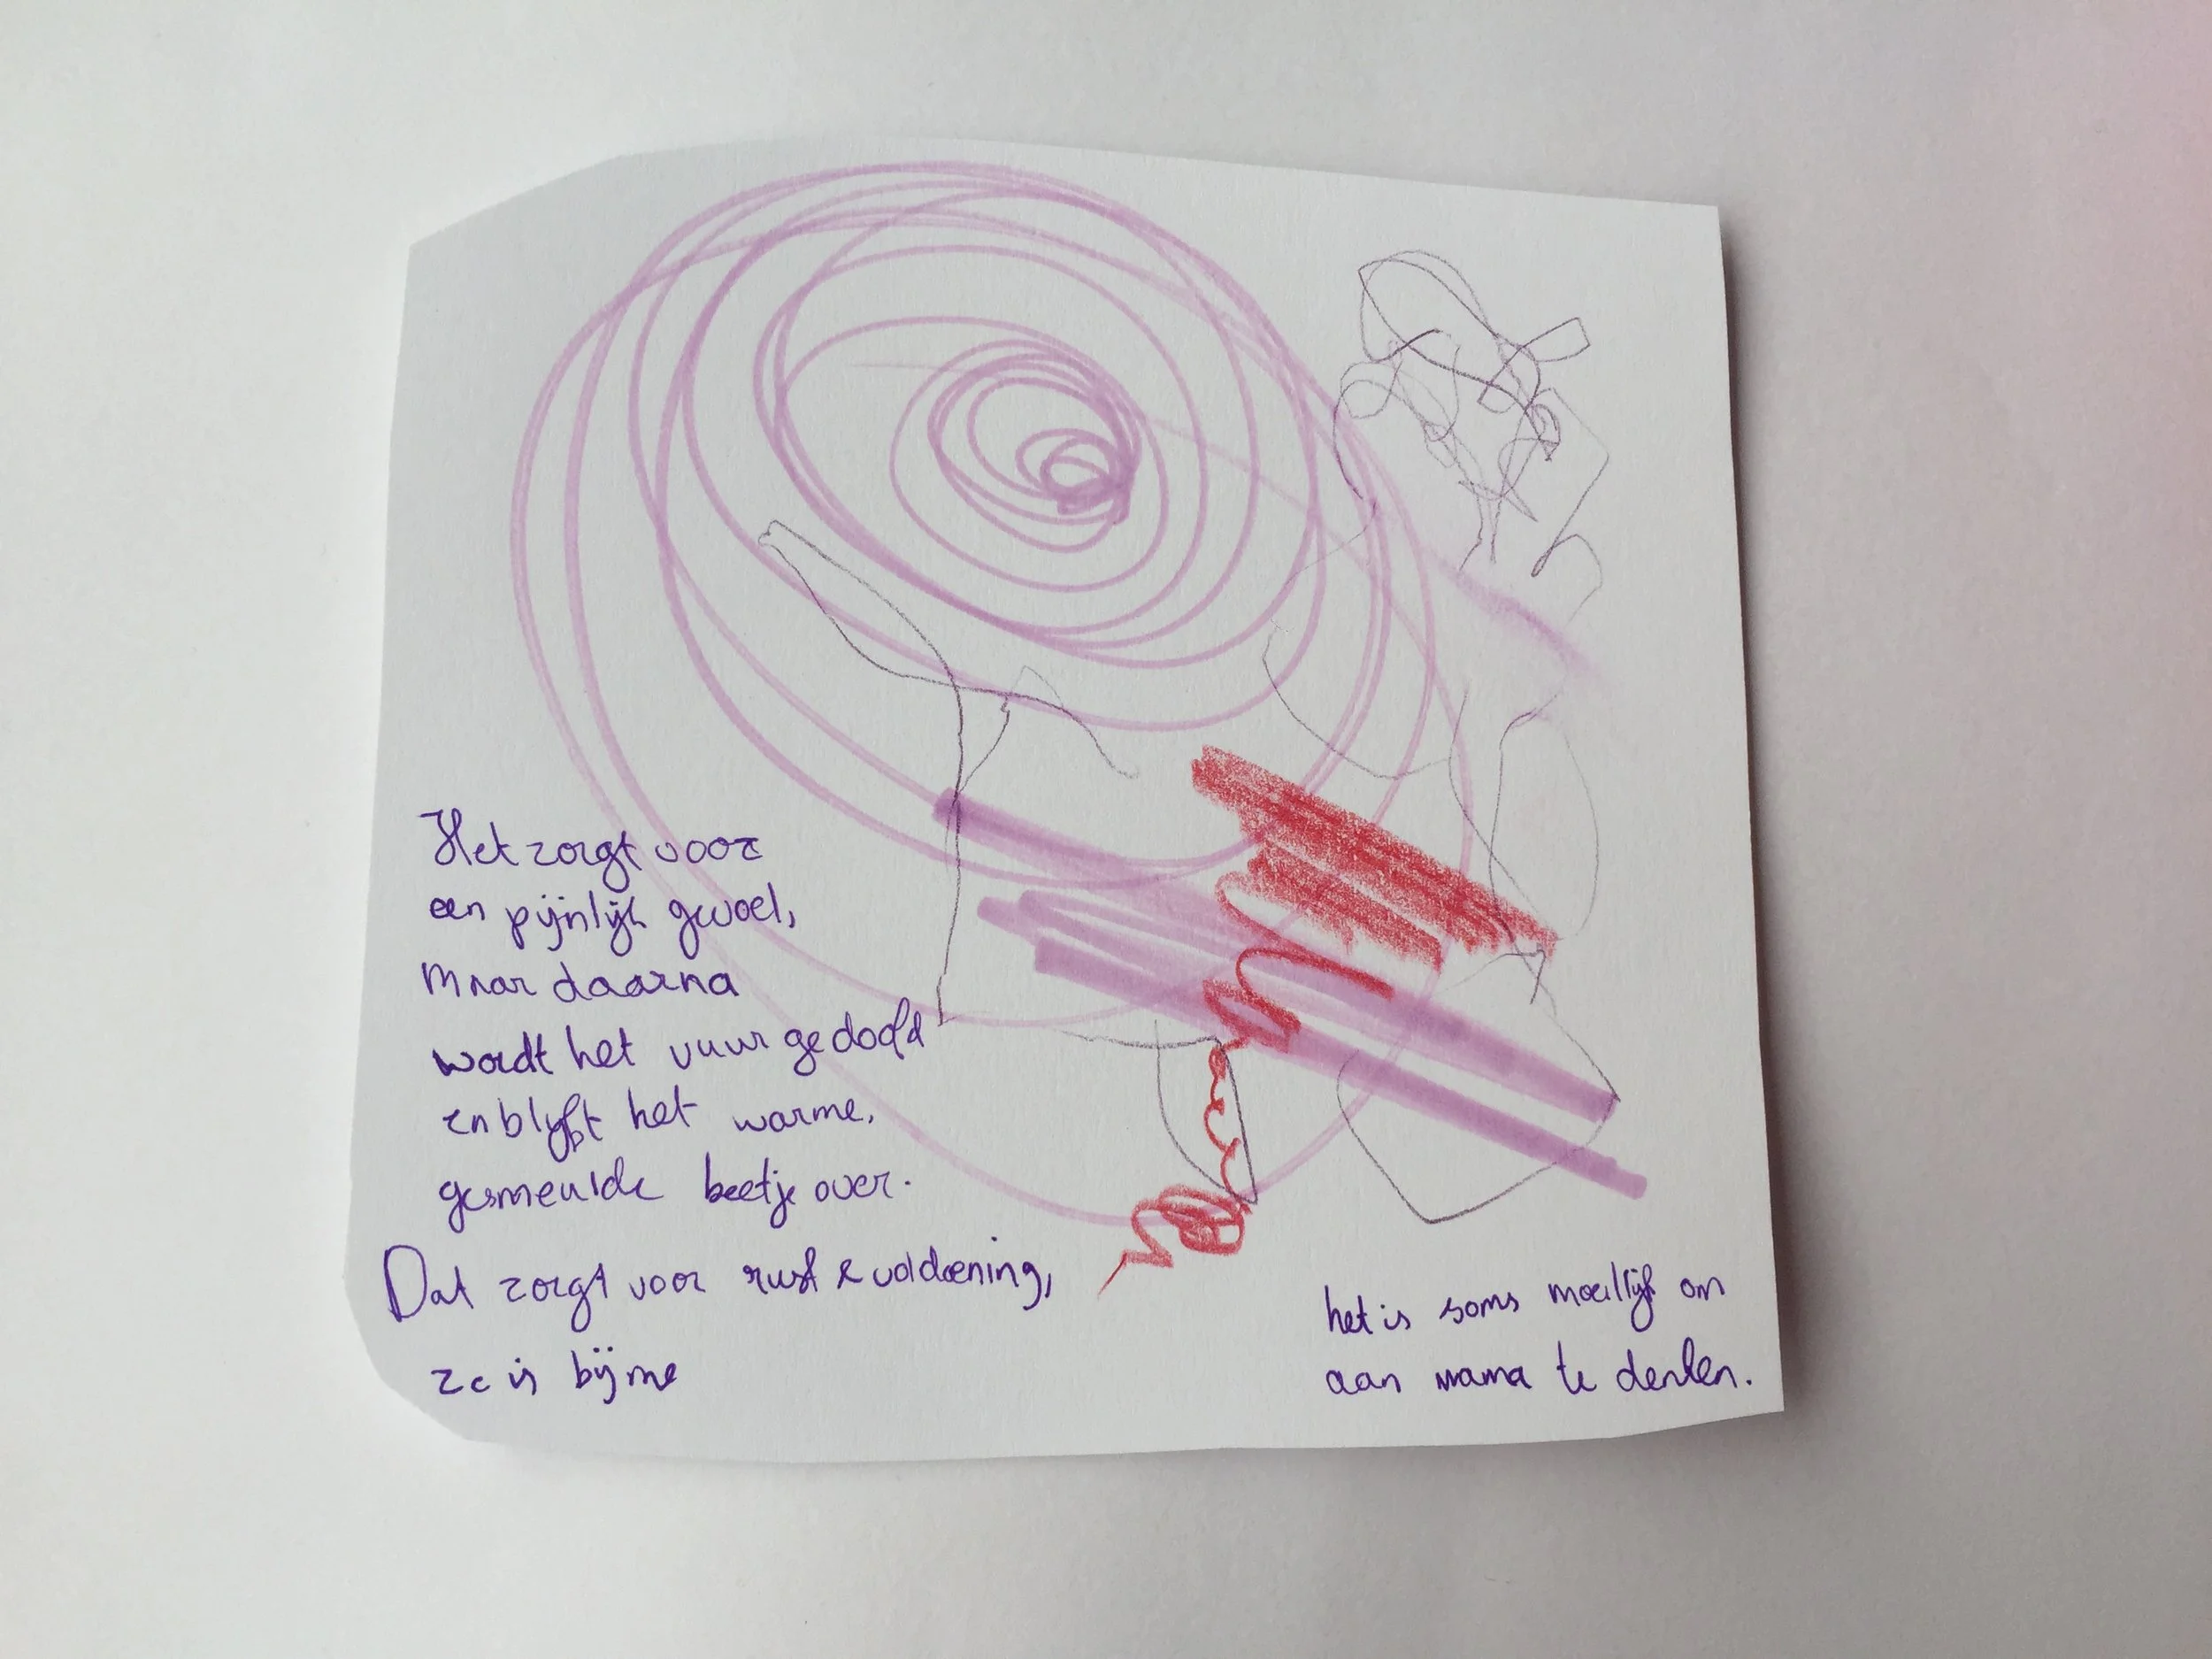 Het zorgt voor
een pijnlijk gevoel,
Maar daarna
wordt het vuur gedoofd
en blijft het warme,
gesmeulde beetje over.
Dat zorgt voor rust & voldoening,
ze is bij me
het is soms moeilijk om
aan mama te denken.